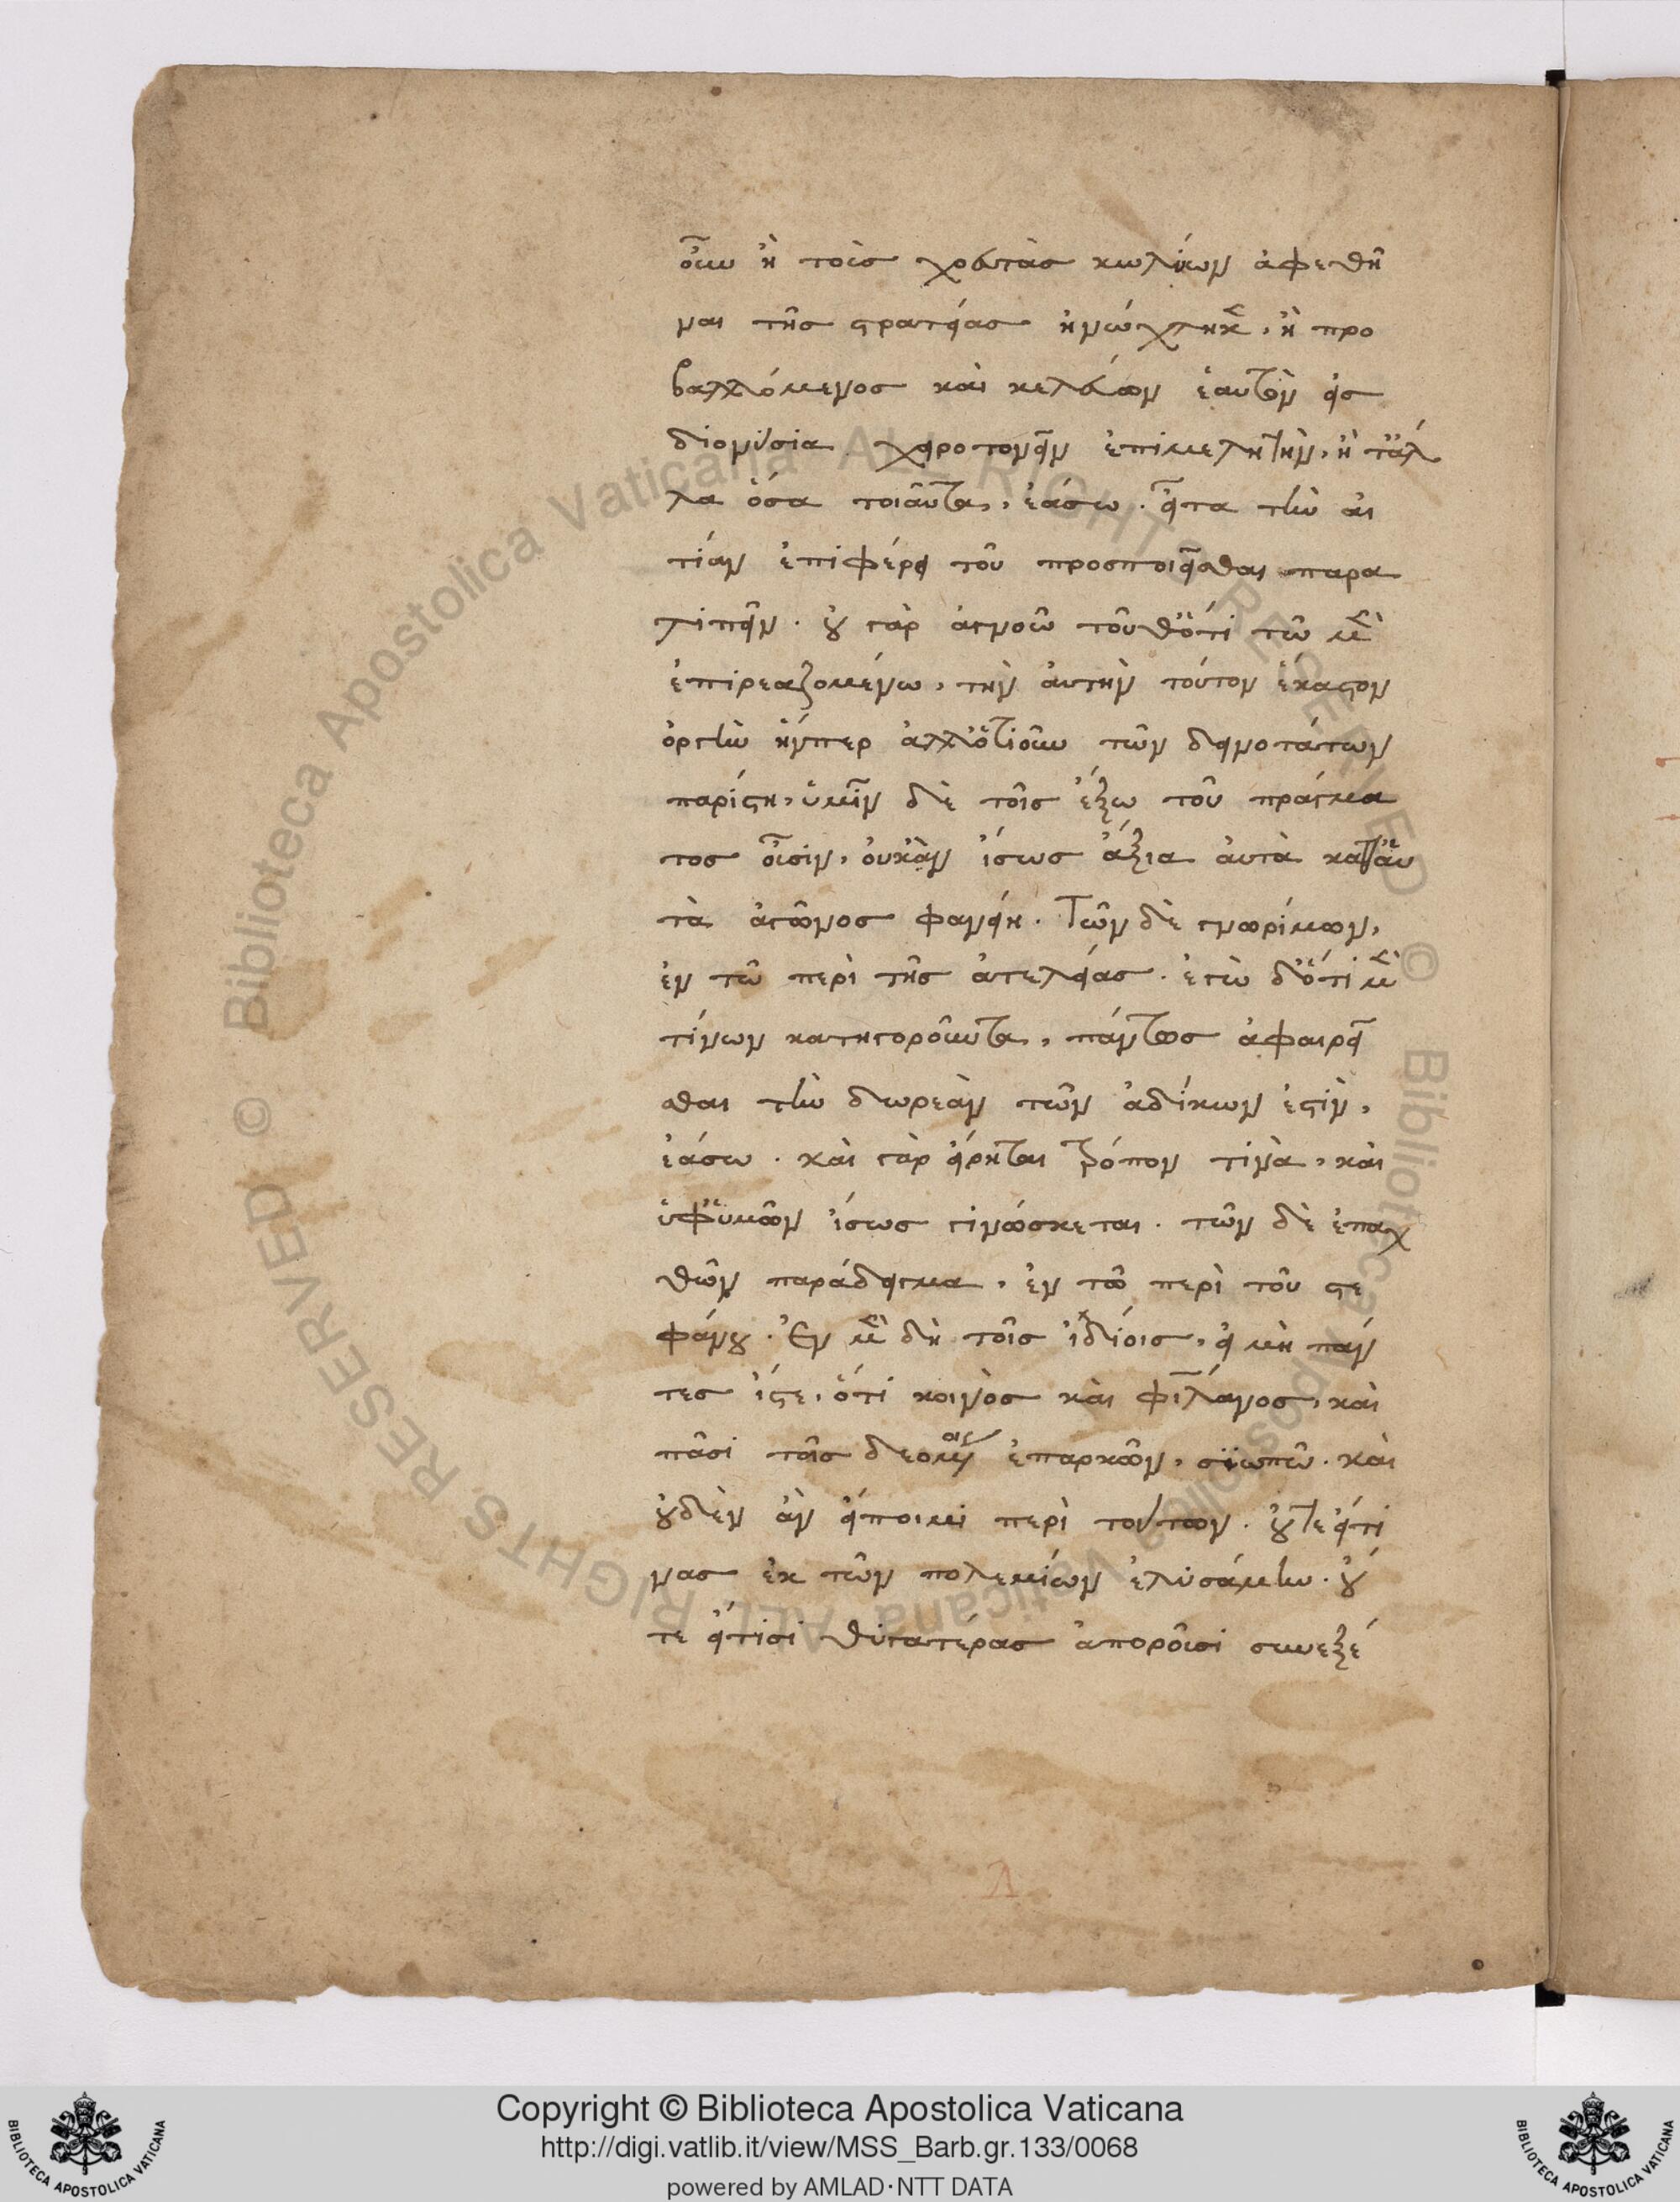 οὖν ἢ τοὺς χορευτὰς κωλύων ἀφεθῆ
ναι τῆς στρατείας ἠνώχλησε, ἢ προ
βαλλόμενος καὶ κελεύων ἑαυτὸν εἰς
διονύσια χειροτονεῖν ἐπιμελητὴν, ἢ τἄλ
λα ὅσα τοιαῦτα, ἐάσω. εἶτα τὴν αἰ
τίαν ἐπιφέρει τοῦ προσποιεῖσθαι παρα
λιπεῖν. οὐ γὰρ ἀγνοῶ τοῦθ' ὅτι τῷ μὲν
ἐπιρεαζομένω, τὴν αὐτὴν τούτον ἕκαστον
ὀργὴν ἥνπερ ἀλλ' ὁτιοῦν τῶν δεινοτάτων
παρίστη, ὑμῖν δὲ τοῖς ἔξω τοῦ πράγμα
τος οὖσιν, οὐκ ἂν ἴσως ἄξια αὐτὰ καθ' αὑ
τὰ ἀγῶνος φανείη. Τῶν δὲ γνωρίμων,
ἐν τῷ περὶ τῆς ἀτελείας. ἐγὼ δ' ὅτι μὲν
τίνων κατηγοροῦντα, πάντως ἀφαιρεῖ
σθαι τὴν δωρεὰν τῶν ἀδίκων ἐστὶν,
ἐάσω. καὶ γὰρ εἴρηται τρόπον τινὰ, καὶ
ὑφ' ὑμῶν ἴσως γινώσκεται. τῶν δὲ ἐπαχ
θῶν παράδειγμα, ἐν τῷ περὶ τοῦ στε
φάνου. Ἐν μὲν δὴ τοῖς ἰδίοις, εἰ μὴ πάν
τες ἴστε, ὅτι κοινὸς καὶ φιλάνος, καὶ
πᾶσι τοῖς δεομένοις ἐπαρκῶν, σιωπῶ. καὶ
οὐδὲν ἂν εἴποιμι περὶ τούτων. οὔτ' εἴ τι
νας ἐκ τῶν πολεμίων ἐλυσάμην. οὔ
τε εἴ τισι θυγατέρας ἀποροῦσι συνεξέ
Copyright © Biblioteca Apostolica Vaticana
http://digi.vatlib.it/view/MSS_Barb.gr.133/0068
powered by AMLAD·NTT DATA